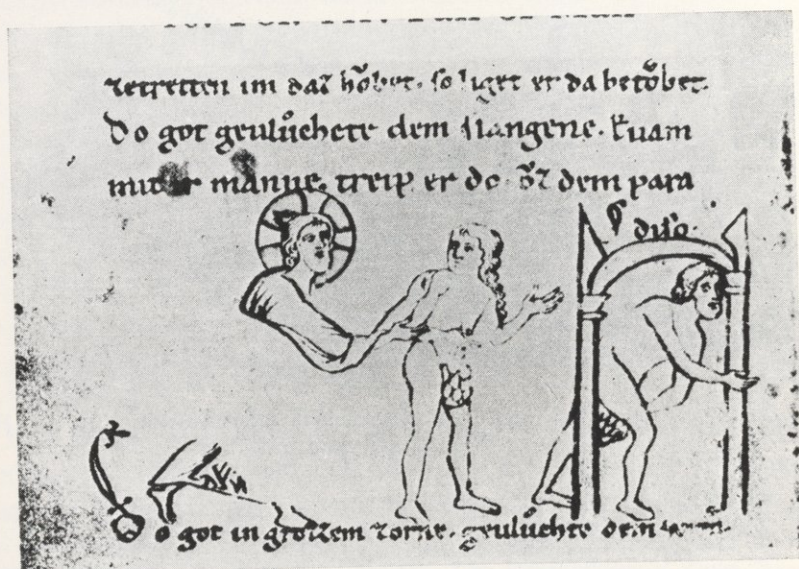 zetretten im daz hŏbet. so liget er da betŏbet.
Do got geulůchete dem slangene. Euam
mit ir manne. treip er do. ŏz dem para
diso.
Do got in grozzem zorne. geuluchte dem